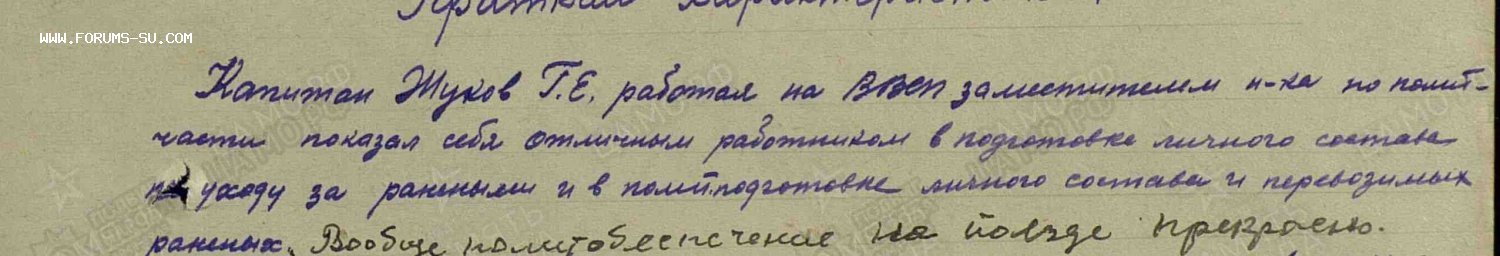 Краткая характеристика
WWW.FORUMS-SU.COM
Капитан Жуков Г.Е. работая на ВВСП заместителем н-ка по полит-
части показал себя отличным работником в подготовке личного состава
по уходу за ранеными и в полит.подготовке личного состава и перевозимых
раненых. Вообще политобеспечение на поезде прекрасно.